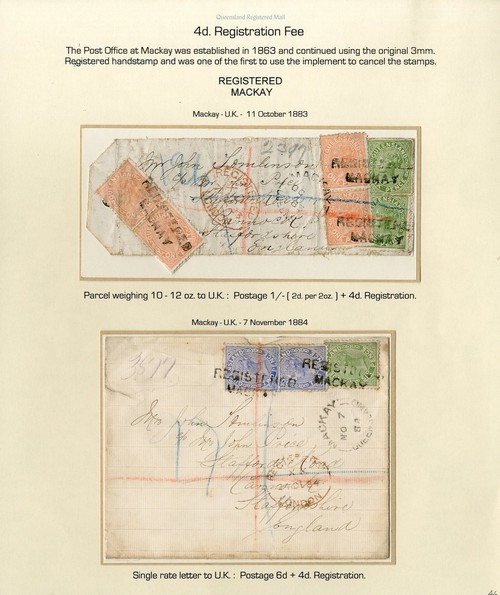 Queensland Registered Mail
4d. Registration Fee
The Post Office at Mackay was established in 1863 and continued using the original 3mm.
Registered handstamp and was one of the first to use the implement to cancel the stamps.
REGISTERED
MACKAY
Mackay - U.K. - 11 October 1883
2307
Mr John Tomlinson
REGISTERED
MACKAY
REGISTERED
MACKAY
REGISTERED
MACKAY
MACKAY
Staffordshire
England
Parcel weighing 10 - 12 oz. to U.K. : Postage 1/- ( 2d. per 2oz. ) + 4d. Registration.
Mackay - U.K. - 7 November 1884
REGISTERED
MACKAY
REGISTERED
MACKAY
MACKAY
NO 7
84
QUEENSLAND
Mrs John
c/o Mr John Price
Stafford Road
LONDON
Staffordshire
England
Single rate letter to U.K. : Postage 6d + 4d. Registration.